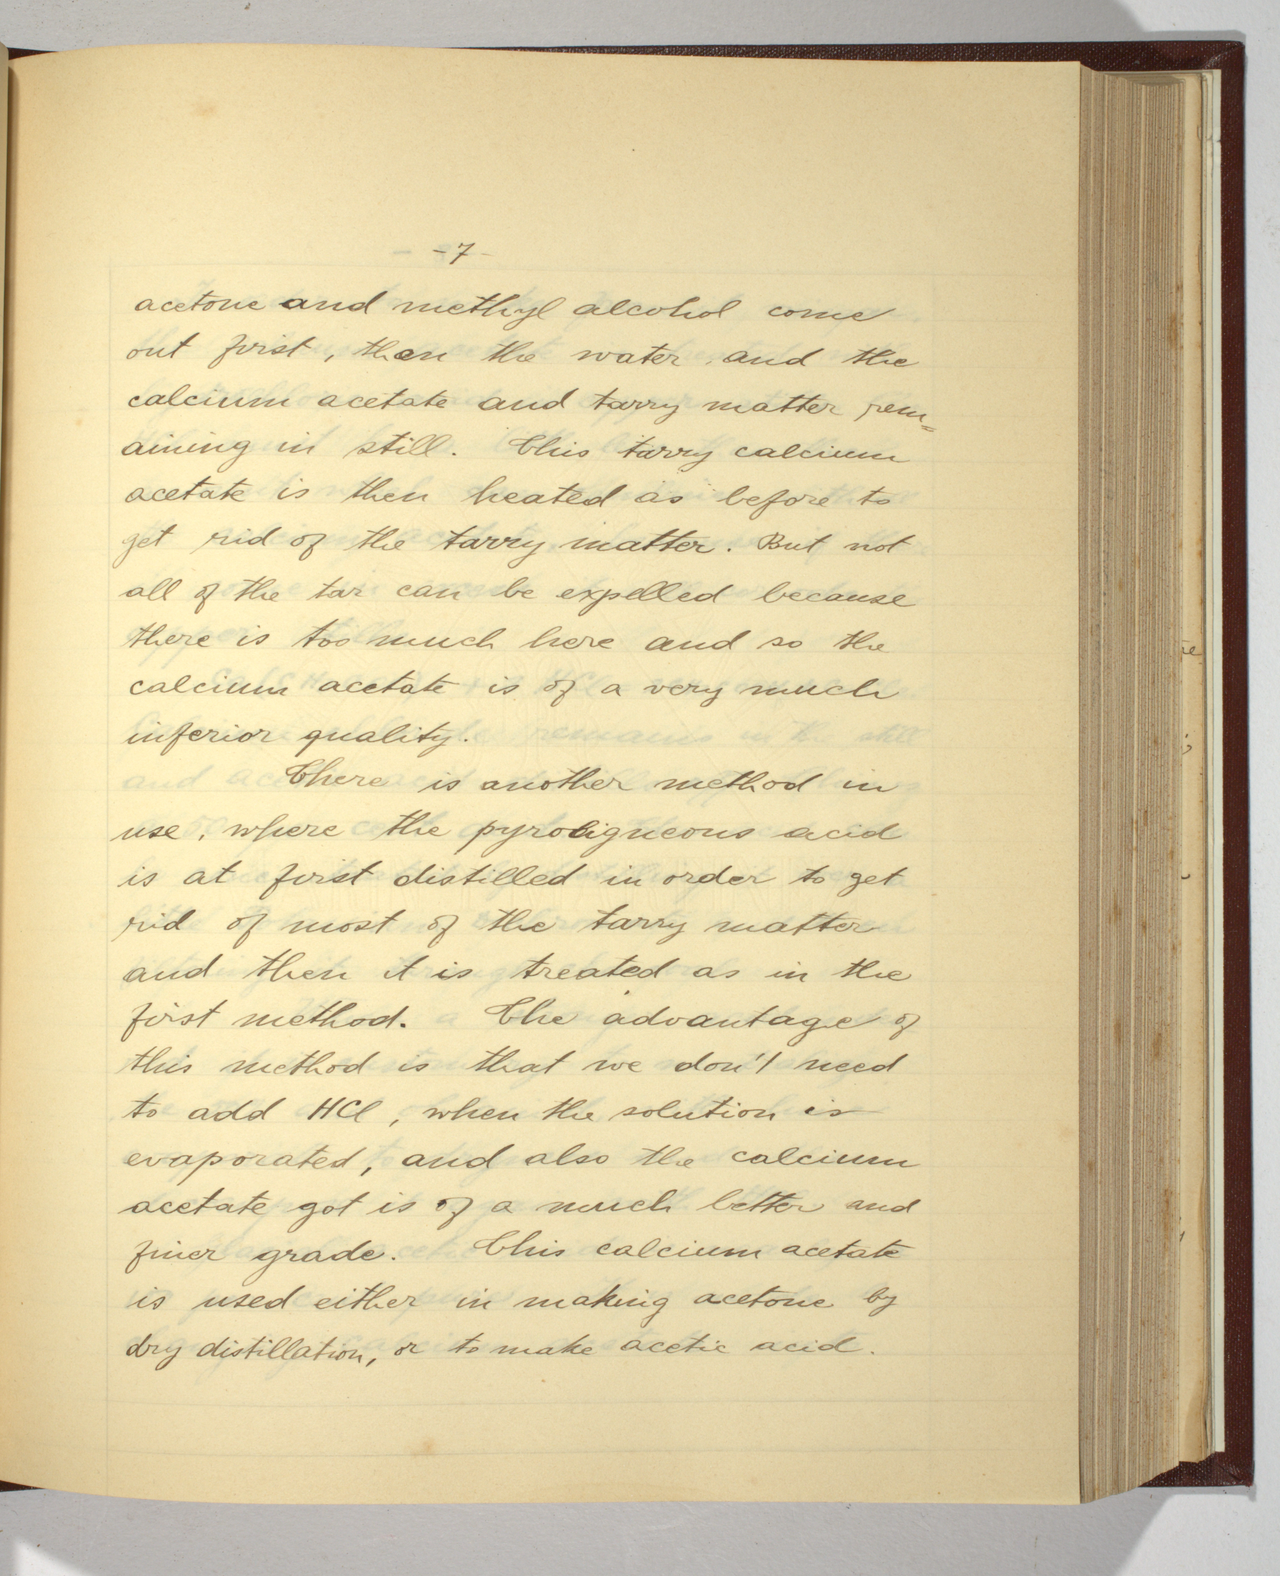 -7-
acetone and methyl alcohol come
out first, then the water and the
calcium acetate and tarry matter rem=
aining in still. This tarry calcium
acetate is then heated as before to
get rid of the tarry matter. But not
all of the tar can be expelled because
there is too much here and so the
calcium acetate is of a very much
inferior quality.
There is another method in
use, where the pyroligneous acid
is at first distilled in order to get
rid of most of the tarry matter
and then it is treated as in the
first method. The advantage of
this method is that we don't need
to add HCl, when the solution is
evaporated, and also the calcium
acetate got is of a much better and
finer grade. This calcium acetate
is used either in making acetone by
dry distillation, or to make acetic acid.